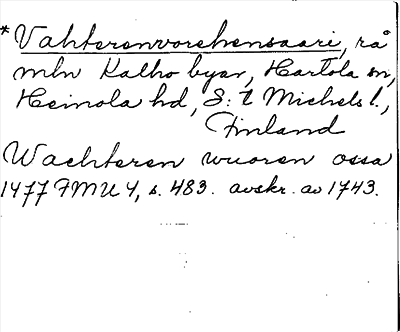 *Vahterenvorehensaari, rå
mln Kalho byar, Hartola sn,
Heinola hd, S:t Michels l.,
Finland
Wachteren wuoren ossa
1477 FMU 4, s. 483. avskr. av 1743.